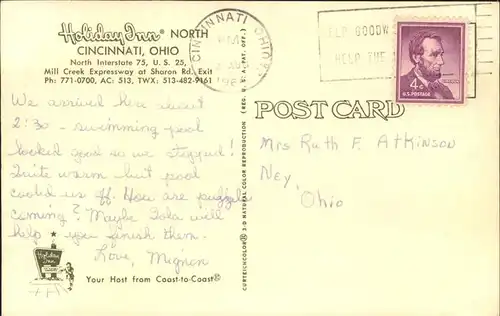 Holiday Inn® NORTH
CINCINNATI, OHIO
North Interstate 75, U. S. 25,
Mill Creek Expressway at Sharon Rd. Exit
Ph: 771-0700, AC: 513, TWX: 513-482-9161
We arrived here about
2:30 - swimming pool
looked good so we stopped!
Quite warm but pool
cooled us off. How are puzzles
coming? Maybe Lola will
help you finish them.
Love, Mignon
Your Host from Coast-to-Coast®
CURTEICHCOLOR® 3-D NATURAL COLOR REPRODUCTION (REG. U.S.A. PAT. OFF.)
CINCINNATI OHIO
PM
HELP GOODW
HELP THE
4¢
U.S. POSTAGE
POST CARD
Mrs Ruth F. Atkinson
Ney,
Ohio